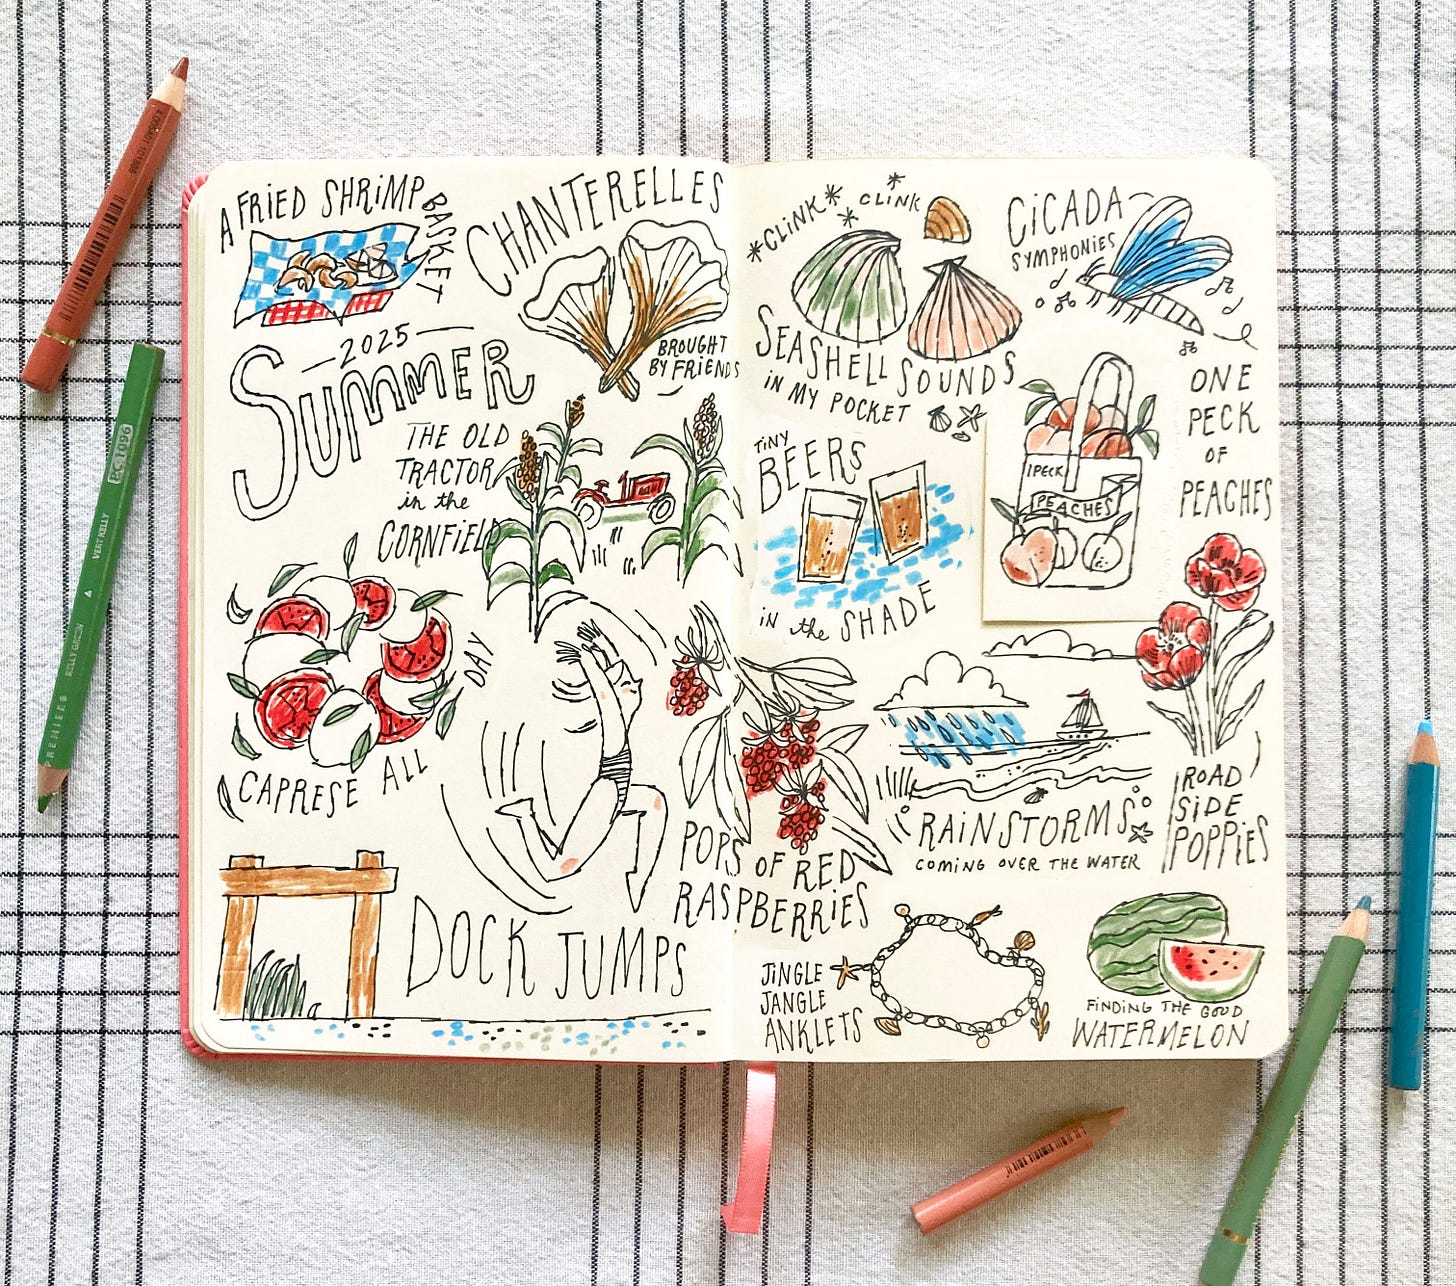 A FRIED SHRIMP
BASKET
CHANTERELLES
BROUGHT
BY FRIENDS
2025
SUMMER
THE OLD
TRACTOR
in the
CORNFIELD
CAPRESE ALL
DAY
DOCK JUMPS
POPS OF RED
RASPBERRIES
*CLINK*
*CLINK
SEASHELL SOUNDS
iN MY POCKET
CiCADA
SYMPHONiES
TiNY
BEERS
iN the SHADE
1 PECK
PEACHES
ONE
PECK
OF
PEACHES
RAiNSTORMS
COMING OVER THE WATER
ROAD
SiDE
POPPiES
JiNGLE
JANGLE
ANKLETS
FiNDiNG THE GOOD
WATERMELON
PC 1096
VERT KELLY
KELLY GREEN
PREMIER